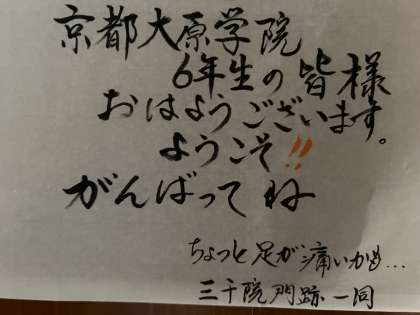 京都大原学院
6年生の皆様
おはようございます。
ようこそ!!
がんばってね
ちょっと足が痛いかも...
三千院門跡一同